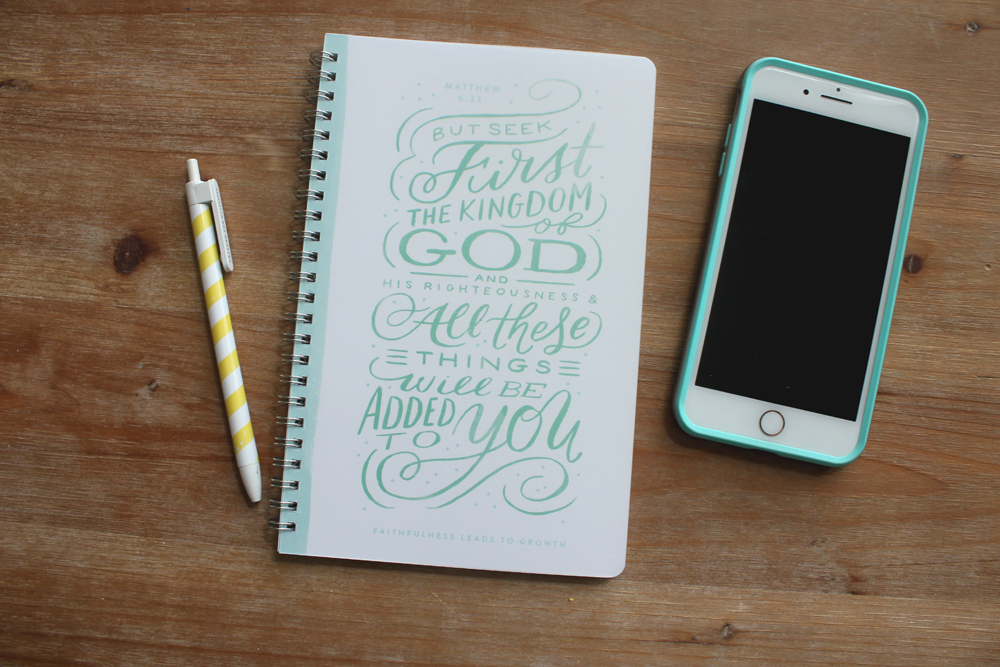 MATTHEW
6:33
BUT SEEK
First
THE KINGDOM
of
GOD
AND
HIS RIGHTEOUSNESS &
All these
THINGS
will BE
ADDED
TO YOU
FAITHFULNESS LEADS TO GROWTH